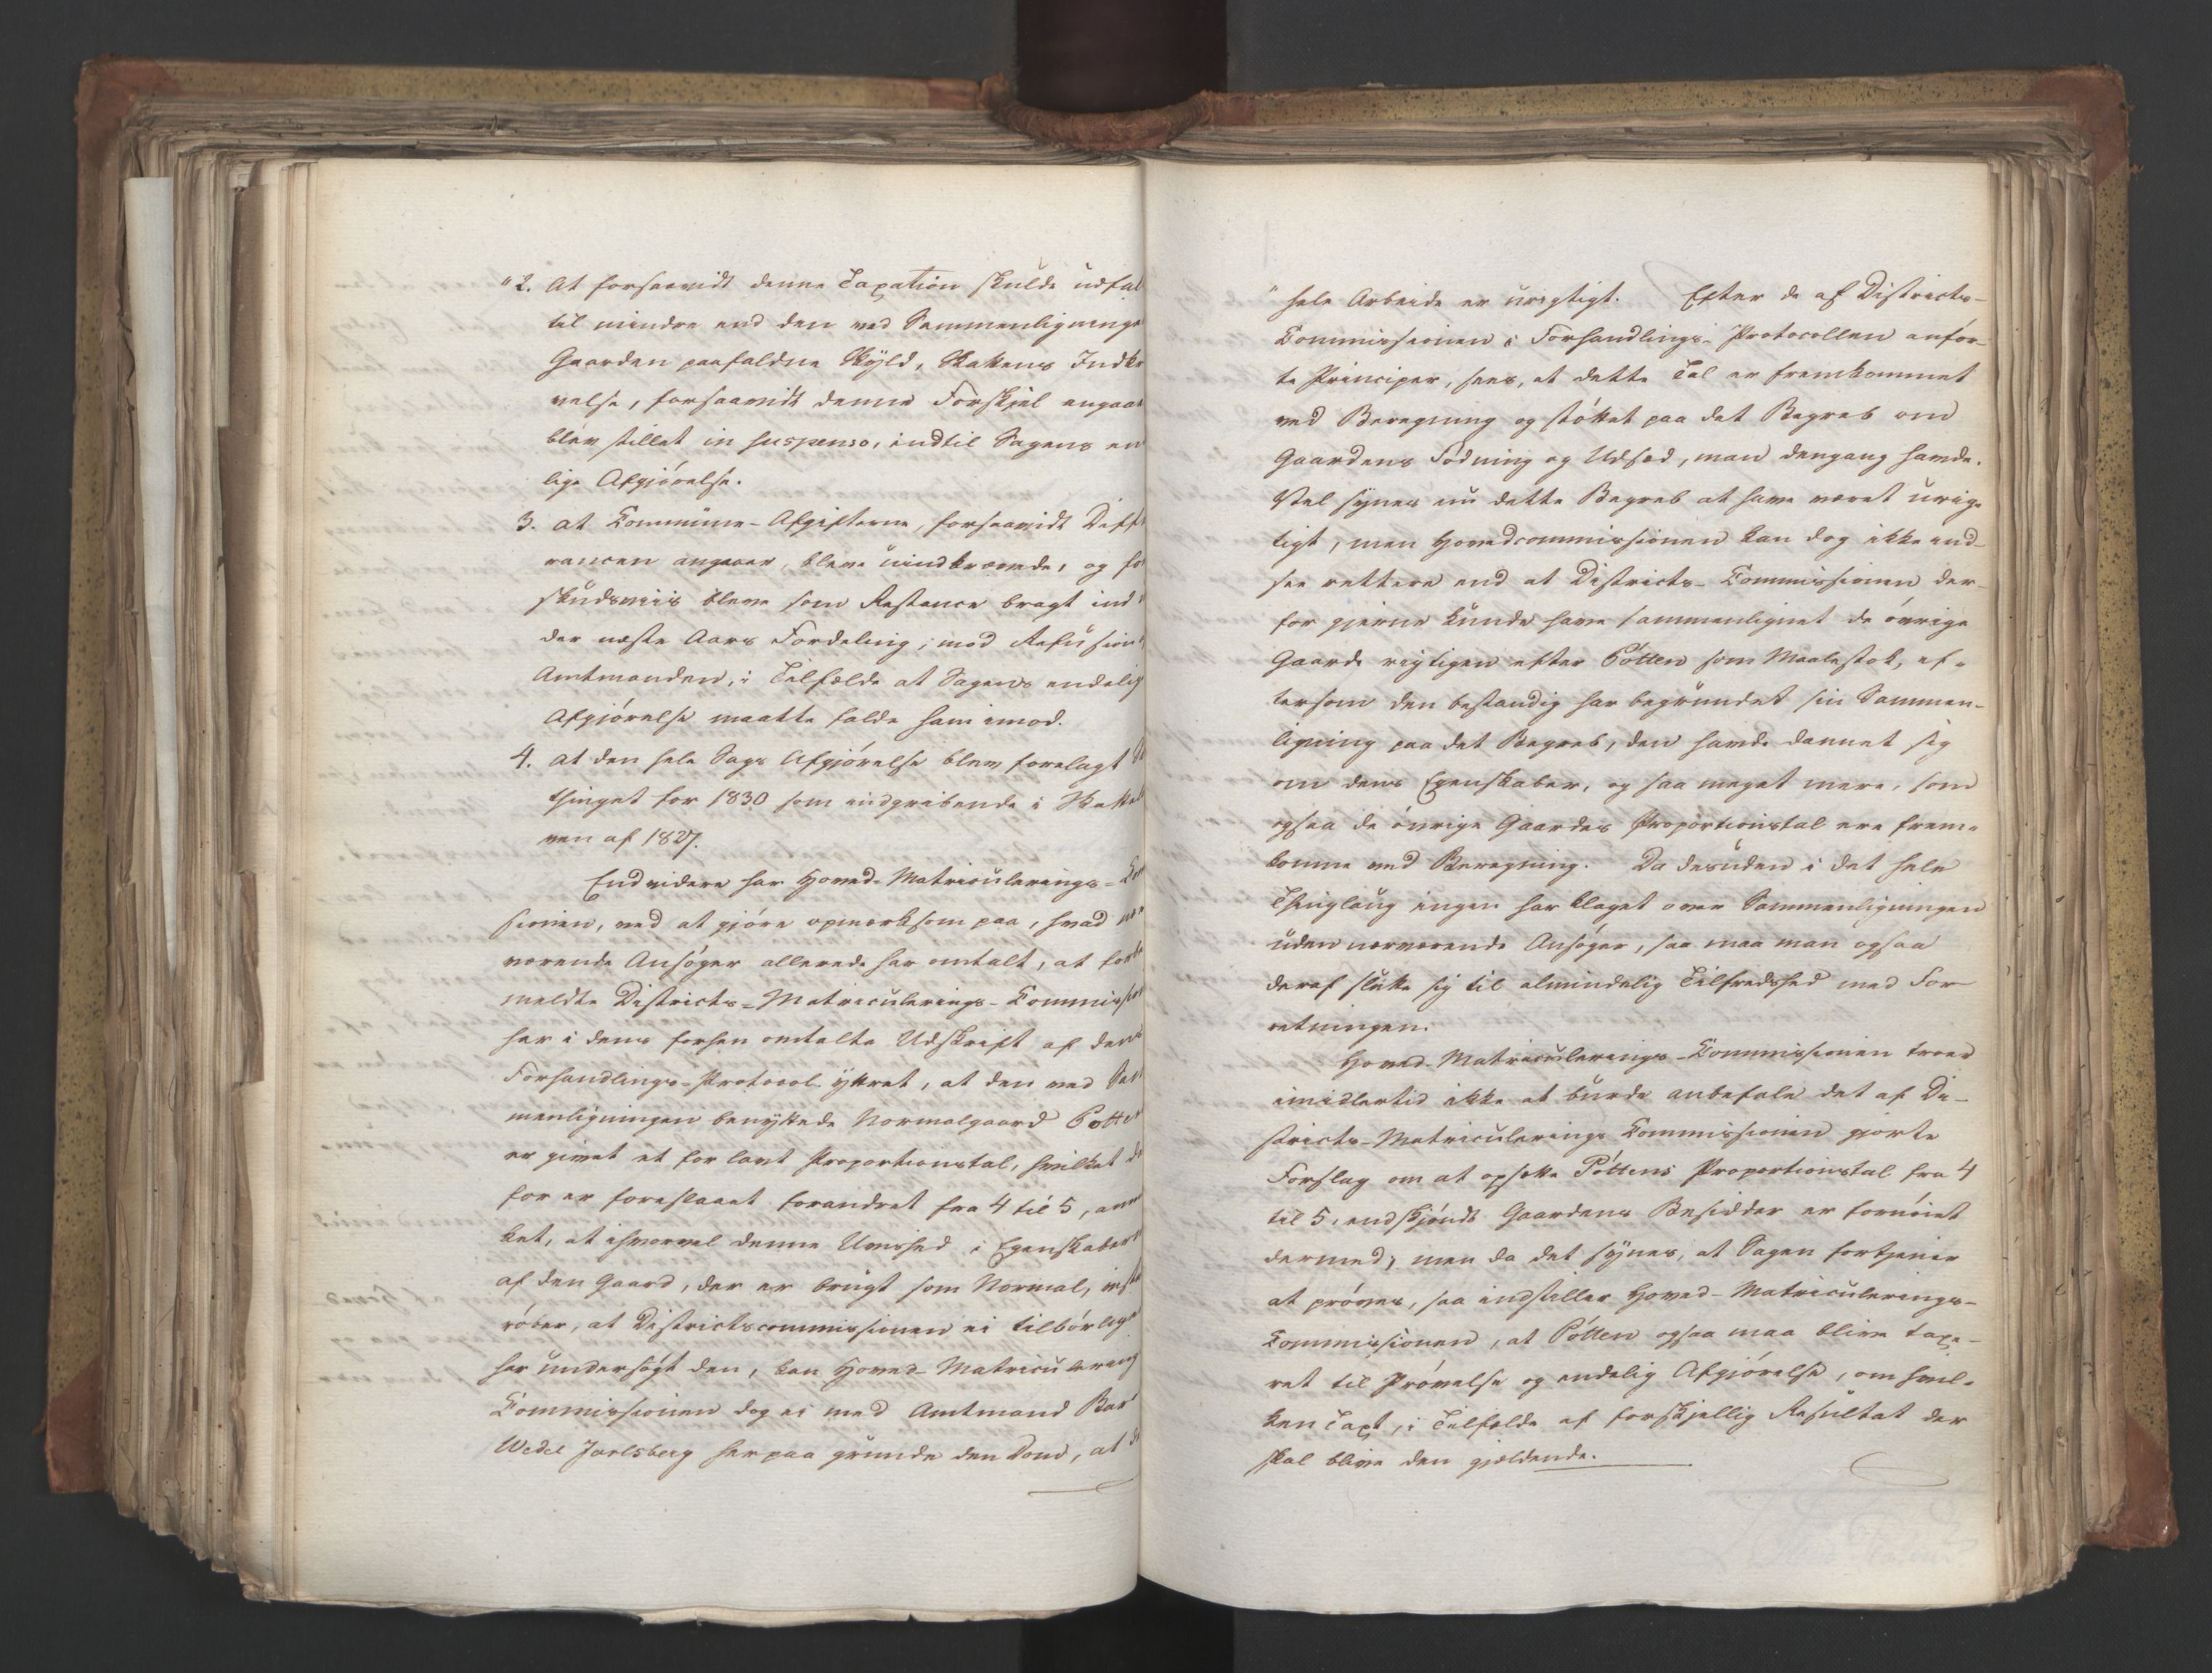 "2. At forsaavidt denne Taxation skulde udfal
til mindre end den ved Sammenligninge
Gaarden paafaldne Skyld, Skattens Indkr
velse, forsaavidt denne Forskjel angaar
blev stillet in suspenso, indtil Sagens en
lige Afgjörelse.
3. at Commune-Afgifterne, forsaavidt Diffe
rancen angaaer, bleve uindkrævede, og for
skudsviis bleve som Restance bragt ind
der næste Aars Fordeling, mod Refusion
Amtmanden, i Tilfælde at Sagens endelig
Afgjörelse maatte falde ham imod.
4. at den hele Sags Afgjörelse blev forelagt
thinget for 1830 som indgribende i Skattel
ven af 1827.
Endvidere har Hoved-Matriculerings-Com
sionen, ved at gjöre opmerksom paa, hvad nær
værende Ansöger allerede har omtalt, at forbe
meldte Districts-Matriculerings-Commission
har i dens forhen omtalte Udskrift af dens
Forhandlings-Protocol yttret, at den ved Sam
menligningen benyttede Normalgaard Potten
er givet et for lavt Proportionstal, hvilket der
for er foreslaaet forandret fra 4 til 5, anm
ket, at ihvorvel denne Uvished i Egenskaber
af den Gaard, der er brugt som Normal, vist
röber, at Districtscommissionen ei tilbörlige
har undersögt den, kan Hoved-Matriculering
Commissionen dog ei med Amtmand Bar
Wedel Jarlsberg herpaa grunde den Dom, at de
" hele Arbeide er urigtigt. Efter de af Districts-
Commissionen i Forhandlings-Protocollen anför-
te Principer, sees, at dette Tal er fremkommet
ved Beregning og stöttet paa det Begreb om
Gaardens Födning og Udsæd, man dengang havde.
Vel synes nu dette Begreb at have været urig-
tigt, men Hovedcommissionen kan dog ikke ind-
see rettere end at Districts-Commissionen der-
for gjerne kunde have sammenlignet de övrige
Gaarde rigtigen efter Pötten som Maalestok, ef-
tersom den bestandig har begrundet sin Sammen-
ligning paa det Begreb, den havde dannet sig
om dens Egenskaber, og saa meget mere, som
ogsaa de övrige Gaardes Proportionstal ere frem-
komne ved Beregning. Da desuden i det hele
Thinglaug ingen har klaget over Sammenligningen
uden nærværende Ansöger, saa maa man ogsaa
deraf slutte sig til almindelig Tilfredshed med For-
retningen.
Hoved-Matriculerings-Commissionen troer
imidlertid ikke at burde anbefale det af Di-
stricts-Matriculerings Commissionen gjorte
Forslag om at opsætte Pöttens Proportionstal fra 4
til 5, endskjöndt Gaardens Besidder er fornöiet
dermed, men da det synes, at Sagen fortjener
at pröves, saa indstiller Hoved-Matriculerings-
Commissionen, at Pötten ogsaa maa blive taxe-
ret til Prövelse og endelig Afgjörelse, om hvil-
ken Taxt, i Tilfælde af forskjellig Resultat der
skal blive den gjældende.